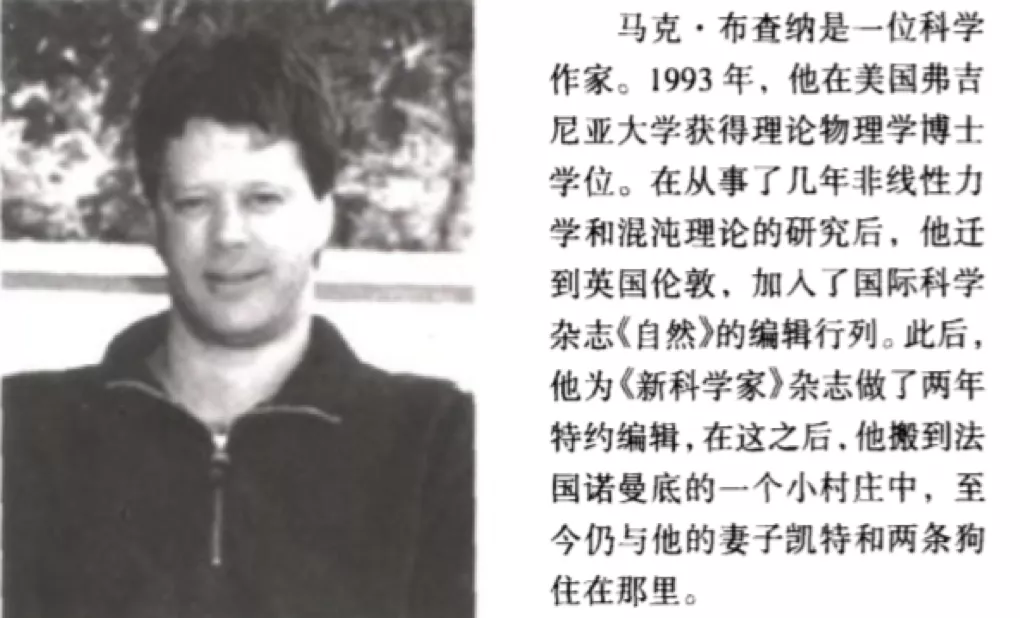 马克·布查纳是一位科学
作家。1993 年，他在美国弗吉
尼亚大学获得理论物理学博士
学位。在从事了几年非线性力
学和混沌理论的研究后，他迁
到英国伦敦，加入了国际科学
杂志《自然》的编辑行列。此后，
他为《新科学家》杂志做了两年
特约编辑，在这之后，他搬到法
国诺曼底的一个小村庄中，至
今仍与他的妻子凯特和两条狗
住在那里。